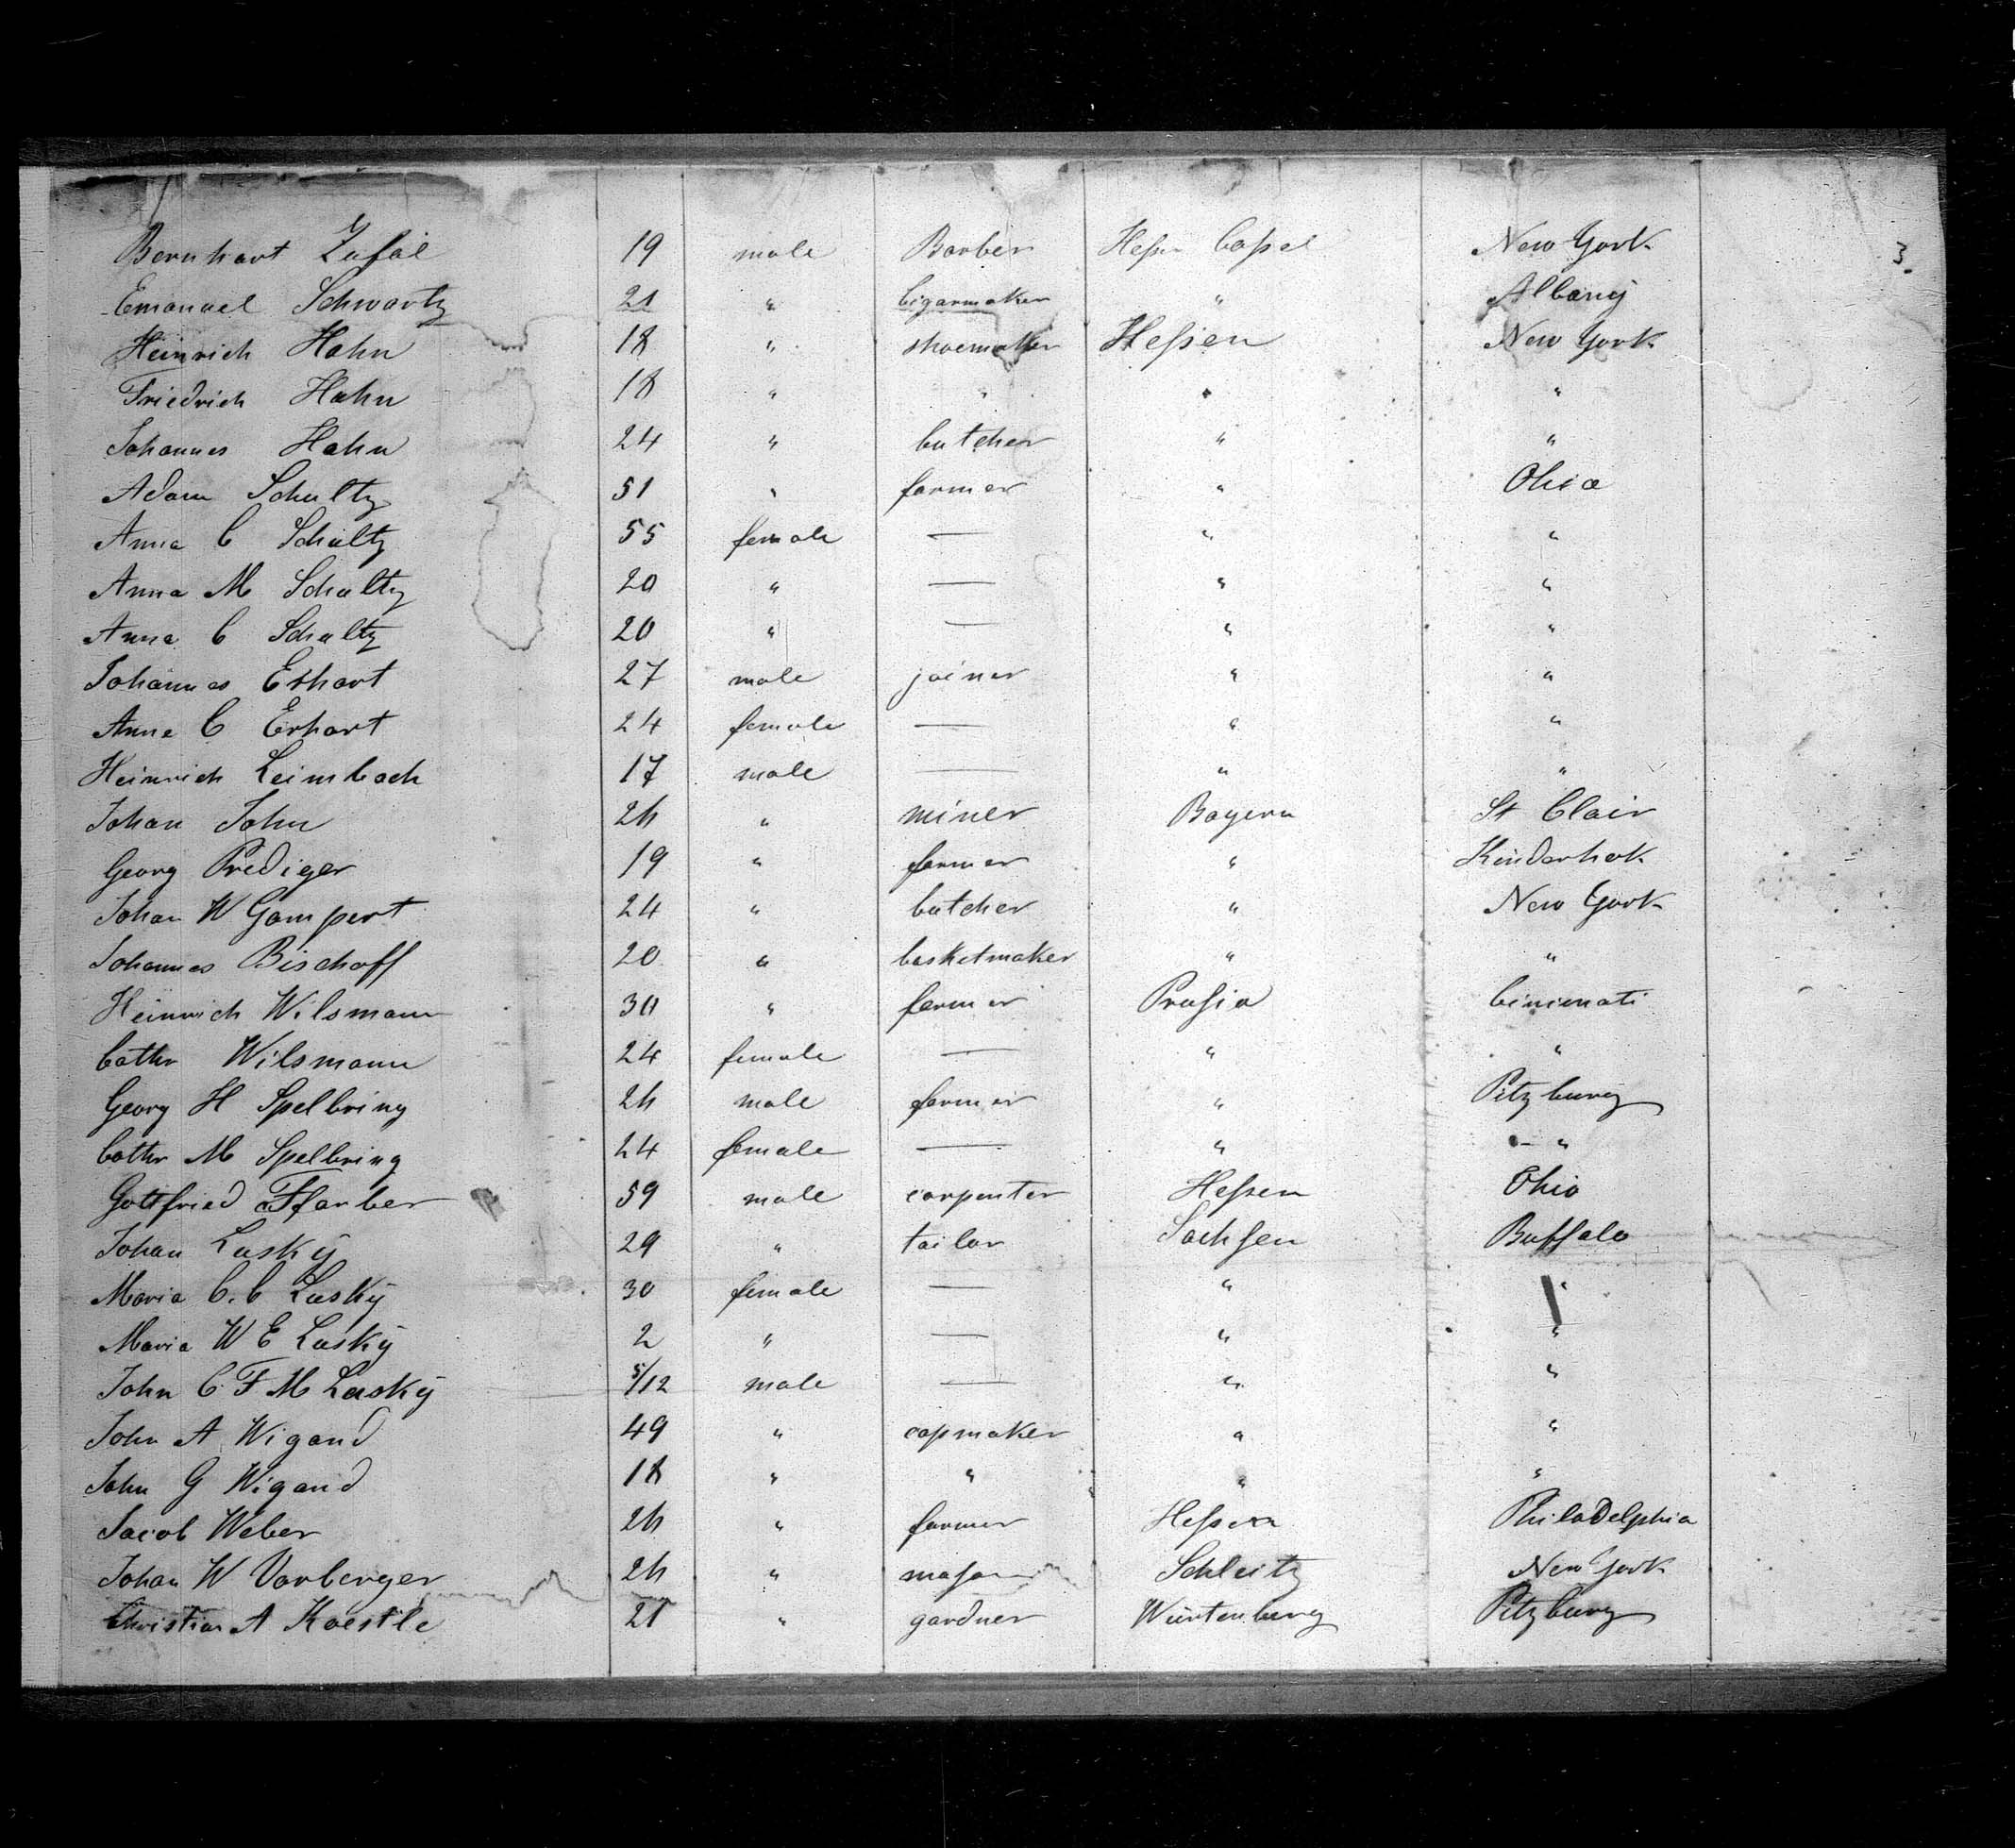 3.
Bernhart Zufal 19 male Barber Hessen Cassel New York
Emanuel Schwartz 21 " Cigarmaker " Albany
Heinrich Hahn 18 " shoemaker Hessen New York
Friedrich Hahn 18 " " " "
Johannes Hahn 24 " butcher " "
Adam Schultz 51 " farmer " Ohio
Anna C Schultz 55 female — " "
Anna M Schultz 20 " — " "
Anna C Schultz 20 " — " "
Johannes Erhart 27 male joiner " "
Anna C Erhart 24 female — " "
Heinrich Leimbach 17 male — " "
Johan John 26 " miner Bayern St Clair
Georg Prediger 19 " farmer " Kinderhok
Johan W Gampert 24 " butcher " New York
Johannes Bischoff 20 " basketmaker " "
Heinrich Wilsmann 30 " farmer Prussia Cincinati
Cathr Wilsmann 24 female — " "
Georg H Spelbring 26 male farmer " Pitzburg
Cathr M Spelbring 24 female — " "
Gottfried Pfarber 59 male carpenter Hessen Ohio
Johan Lasky 29 " tailor Sachsen Buffalo
Maria C. C Lasky 30 female — " "
Maria W E Lasky 2 " — " "
John C. F M Lasky 5/12 male — " "
John A Wigand 49 " capmaker " "
John G Wigand 18 " " " "
Jacob Weber 26 " farmer Hessen Philadelphia
Johan W Vorberger 26 " mason Schleitz New York
Christian A Koestle 21 " gardner Würtenburg Pitzburg